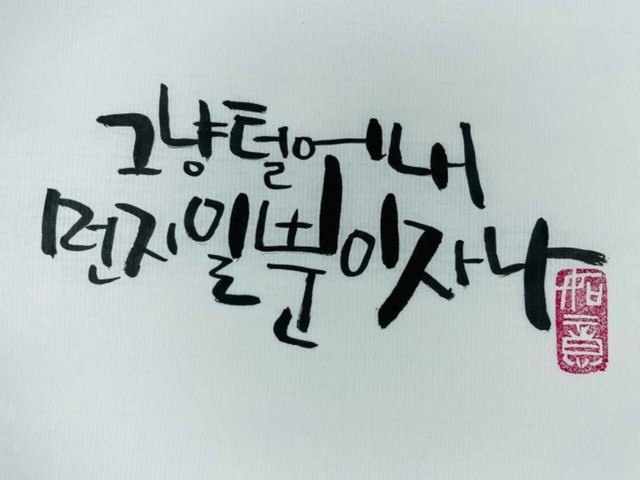 그냥 털어내
먼지일 뿐이자나